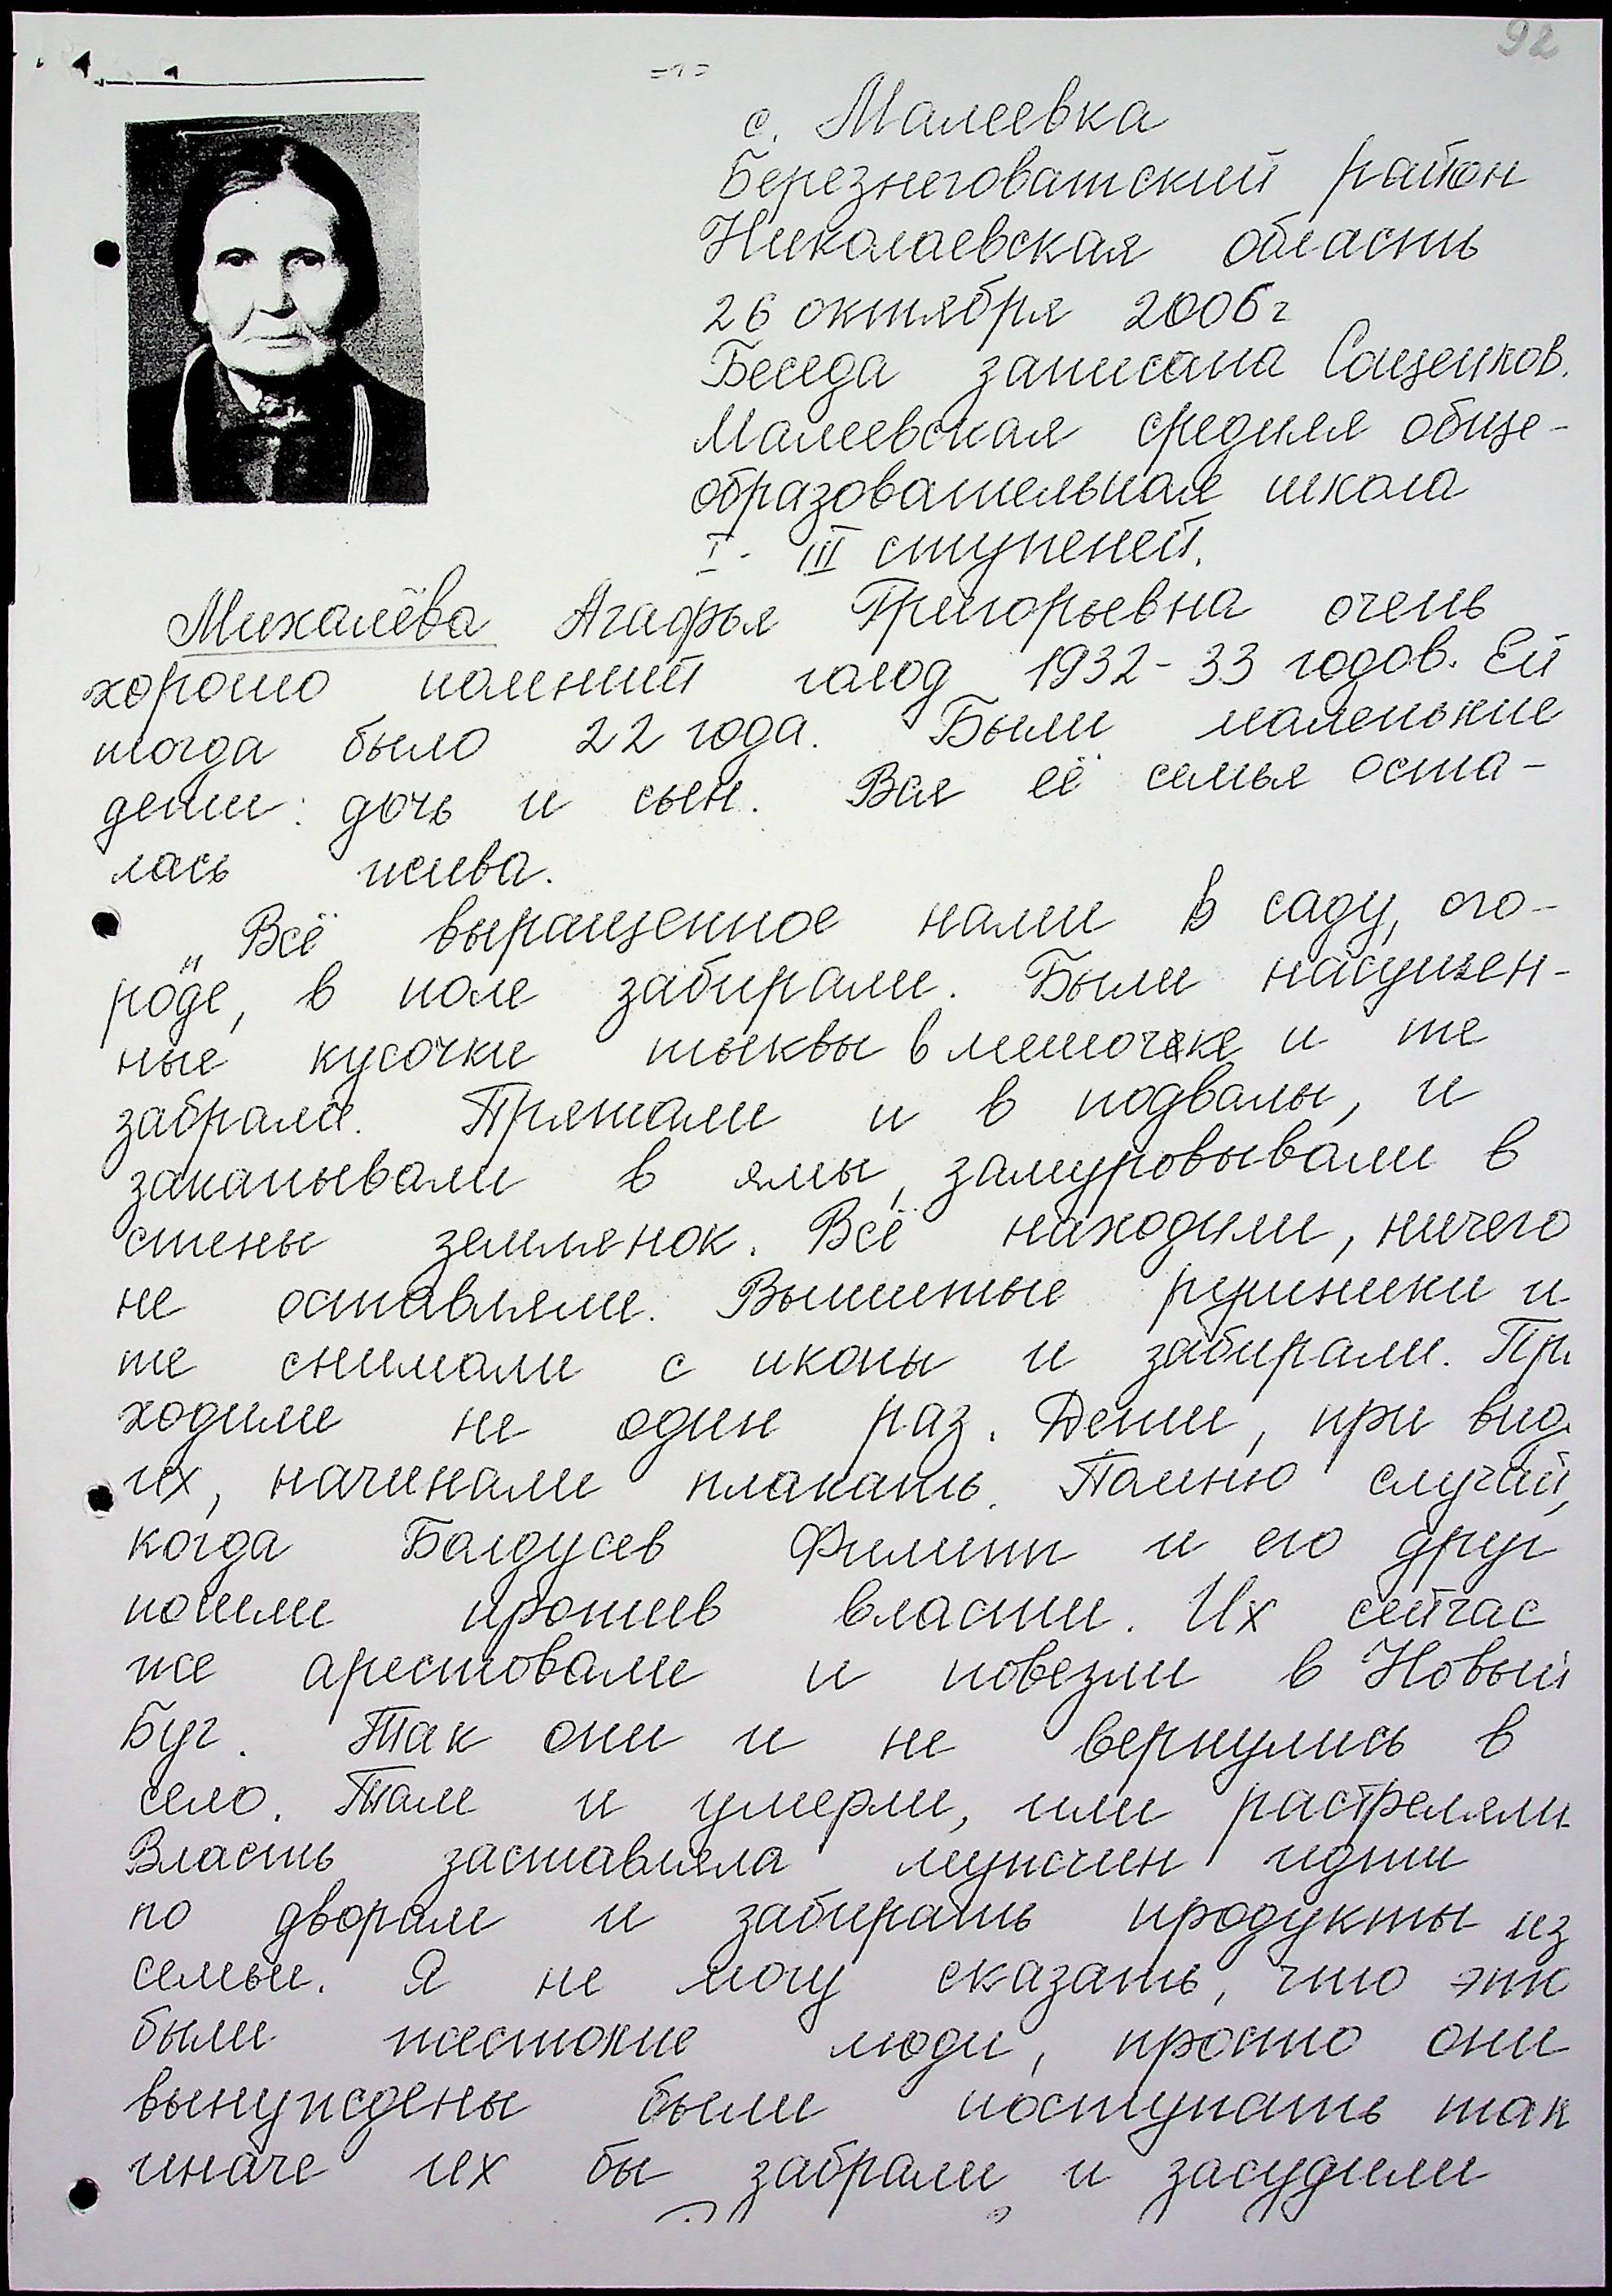 92
с. Малеевка
Березнеговатский район
Николаевская область
26 октября 2006г
Беседа записана Сащенков.
Малеевская средняя обще-
образовательная школа
I - III ступеней.
Михалёва Агафья Григорьевна очень
хорошо помнит голод 1932-33 годов. Ей
тогда было 22 года. Были маленькие
дети: дочь и сын. Вся её семья оста-
лась жива.
„Всё выращенное нами в саду, ого-
роде, в поле забирали. Были насушен-
ные кусочки тыквы в мешочке и те
забрали. Прятали и в подвалы, и
закапывали в ямы, замуровывали в
стены землянок. Всё находили, ничего
не оставляли. Вышитые рушники и
те снимали с иконы и забирали. При
ходили не один раз. Дети, при вид
их, начинали плакать. Помню случай,
когда Балдусев Филипп и его друг
пошли против власти. Их сейчас
же арестовали и повезли в Новый
Буг. Так они и не вернулись в
село. Там и умерли, или растреляли
Власть заставляла мужчин идти
по дворам и забирать продукты из
семьи. Я не могу сказать, что эти
были жестокие люди, просто они
вынуждены были поступать так
иначе их бы забрали и засудили